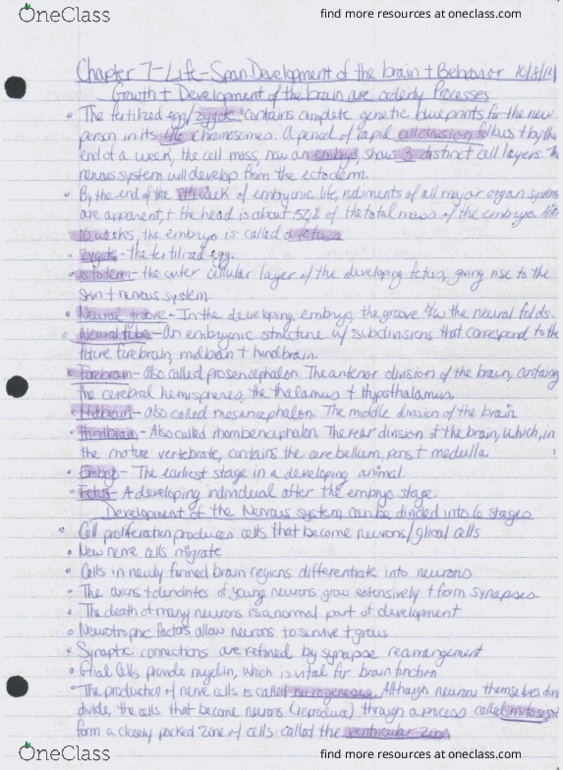 OneClass
find more resources at oneclass.com
Chapter 7-Life-Span Development of the brain + Behavior 10/8/14
Growth + Development of the brain are orderly Processes
• The fertilized egg/zygote contains complete genetic blueprints for the new
person in its 46 chromosomes. A period of rapid cell division follows + by the
end of a week, the cell mass, now an embryo, shows 3 distinct cell layers. The
nervous system will develop from the ectoderm.
• By the end of the 8th week of embryonic life, rudiments of all major organ systems
are apparent, + the head is about 50% of the total mass of the embryo. After
10 weeks, the embryo is called a fetus
• Zygote - the fertilized egg.
• ectoderm - the outer cellular layer of the developing fetus, giving rise to the
skin + nervous system.
• Neural groove - In the developing embryo, the groove b/w the neural folds.
• Neural tube - An embryonic structure w/ subdivisions that correspond to the
future forebrain, midbrain + hindbrain.
• Forebrain - also called prosencephalon. The anterior division of the brain, containing
the cerebral hemispheres, the thalamus + hypothalamus.
• Midbrain - also called mesencephalon. The middle division of the brain
• Hindbrain - Also called rhombencephalon. The rear division of the brain, which, in
the mature vertebrate, contains the cerebellum, pons + medulla
• Embryo - The earliest stage in a developing animal.
• Fetus - A developing individual after the embryo stage.
Development of the Nervous system can be divided into 6 stages
• Cell proliferation produces cells that become neurons/glical cells
• New nerve cells migrate
• Cells in newly formed brain regions differentiate into neurons
• The axons + dendrites of young neurons grow extensively + form synapses
• The death of many neurons is a normal part of development
• Neurotrophic factors allow neurons to survive + grow
• Synaptic connections are refined by synapse rearrangement
• Glial cells provide myelin, which is vital for brain function
• The production of nerve cells is called neurogenesis. Although neurons themselves dont
divide, the cells that become neurons (reproduce) through a process called mitosis +
form a closely packed zone of cells called the ventricular zone
OneClass
find more resources at oneclass.com